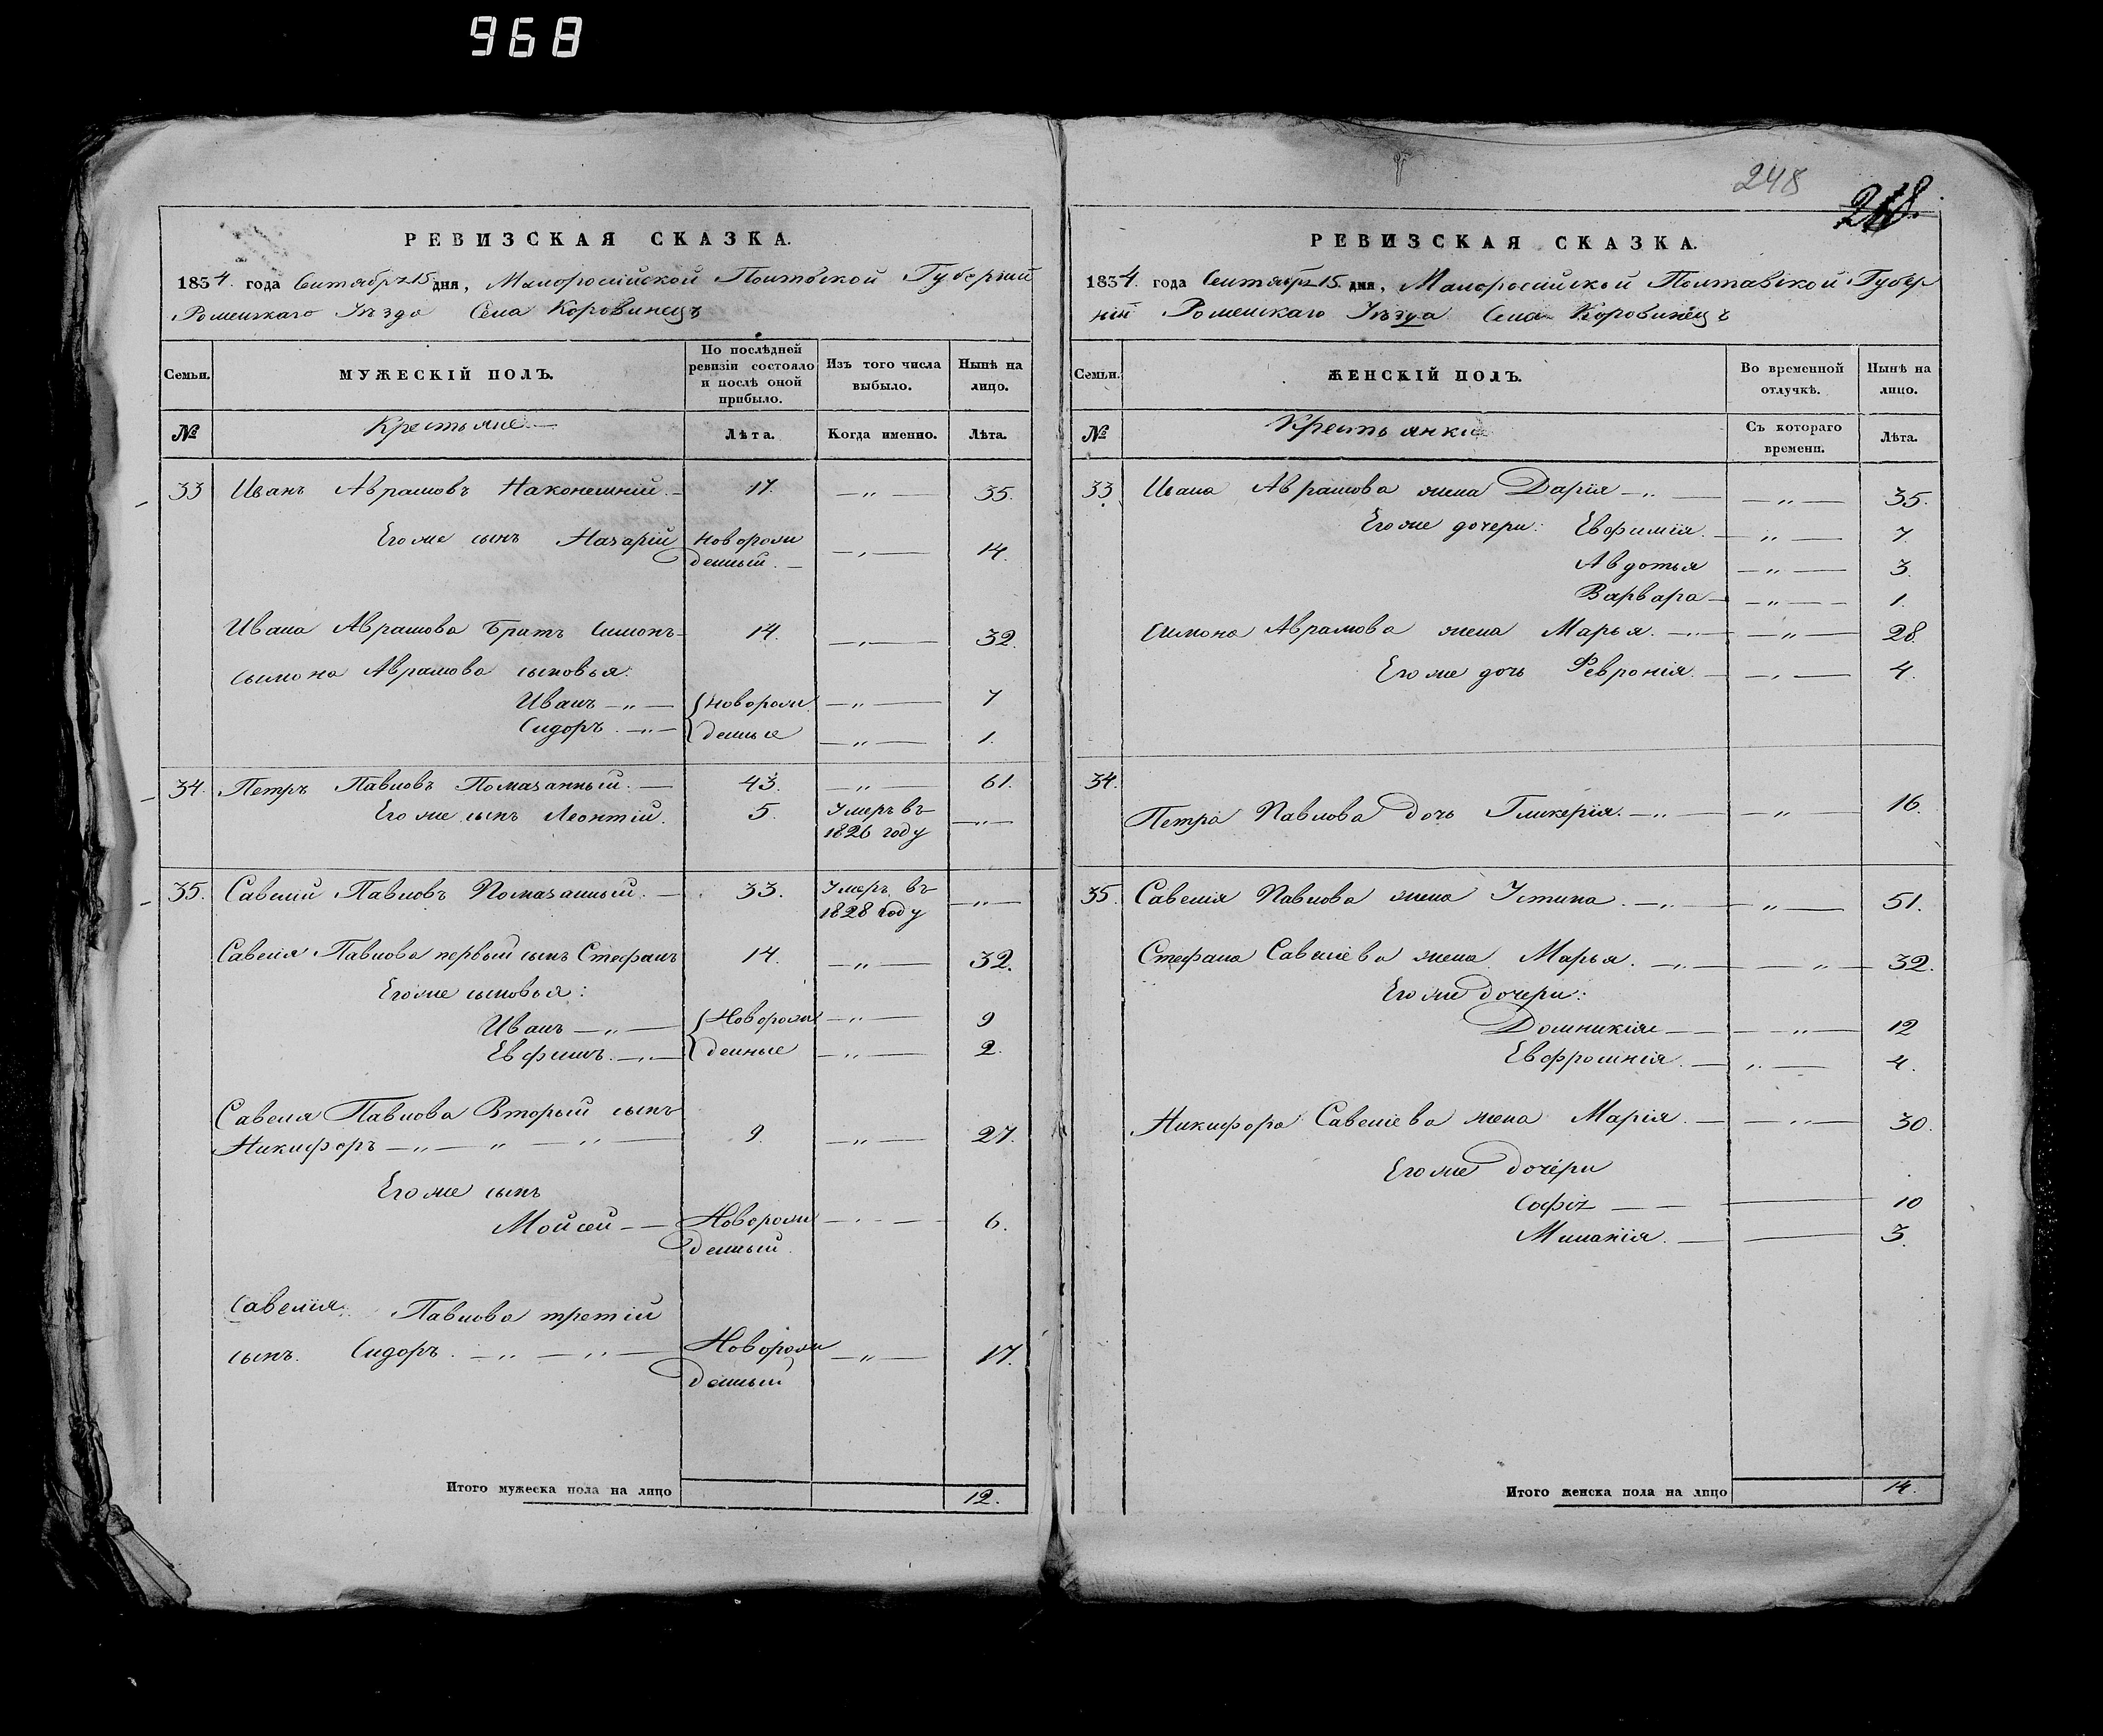 968
РЕВИЗСКАЯ СКАЗКА.
1834. года Сентября 15 дня, Малоросійской Полтавской Губерніи
Роменскаго Уѣзда Села Коровинецъ
Семьи.
МУЖЕСКІЙ ПОЛЪ.
По послѣдней ревизіи состояло и послѣ оной прибыло.
Изъ того числа выбыло.
Нынѣ на лицо.
№
Крестьяне
Лѣта.
Когда именно.
Лѣта.
33 Иванъ Аврамовъ Наконешній. 17. — „ — 35.
Его же сынъ Назарій Новорож
денный. — „ — 14.
Ивана Аврамова Братъ Симонъ 14. — „ — 32.
Симона Аврамова сыновья:
Иванъ — „ — Новорож — „ — 7
Сидоръ. — „ — денные — „ — 1.
34. Петръ Павловъ Помазанный. — 43. — „ — 61.
Его же сынъ Леонтій. 5. Умеръ въ
1826 году — „ —
35. Савелій Павловъ Помазанный. — 33. Умеръ въ
1828 году — „ —
Савелія Павлова первый сынъ Стефанъ 14. — „ — 32.
Его же сыновья:
Иванъ — „ — Новорож — „ — 9
Евфимъ. — „ — денные — „ — 2.
Савелія Павлова Вторый сынъ
Никифоръ — „ — „ — „ — 9. — „ — 27.
Его же сынъ
Мойсей — — Новорож — „ — 6.
денный.
Савелія Павлова третій
сынъ. Сидоръ. — „ — „ — Новорож — „ — 17.
денный
Итого мужеска пола на лицо 12.
248
248.
РЕВИЗСКАЯ СКАЗКА.
1834. года Сентября 15. дня, Малоросійской Полтавской Губер
ніи Роменскаго Уѣзда Села Коровинецъ
Семьи.
ЖЕНСКІЙ ПОЛЪ.
Во временной отлучкѣ.
Нынѣ на лицо.
№
Крестьянки
Съ котораго времени.
Лѣта.
33. Ивана Аврамова жена Дарія — „ — — „ — 35.
Его же дочери: Евфимія. — „ — 7
Авдотья — „ — 3.
Варвара — „ — 1.
Симона Аврамова жена Марья. — „ — — „ — 28.
Его же дочь Февронія. — „ — 4.
34.
Петра Павлова дочь Гликерія. — „ — — „ — 16.
35. Савелія Павлова жена Устина. — „ — — „ — 51.
Стефана Савеліева жена Марья. — „ — — „ — 32.
Его же дочери:
Домникія — — „ — 12
Евфросинія. — „ — 4.
Никифора Савеліева жена Марія. — — „ — 30.
Его же дочери
Софія — — — 10
Миланія. — — 3.
Итого женска пола на лицо 14.